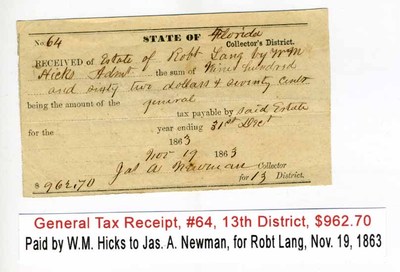 No. 64 STATE OF Florida
Collector's District.
RECEIVED of Estate of Robt Lang by W M
Hicks Admr the sum of Nine hundred
and sixty two dollars & seventy Cents
being the amount of the general
tax payable by said Estate
for the year ending 31st Dect
1863
Nov 19 1863
Jas A Newman Collector
$ 962,70 for 13 District.
General Tax Receipt, #64, 13th District, $962.70
Paid by W.M. Hicks to Jas. A. Newman, for Robt Lang, Nov. 19, 1863